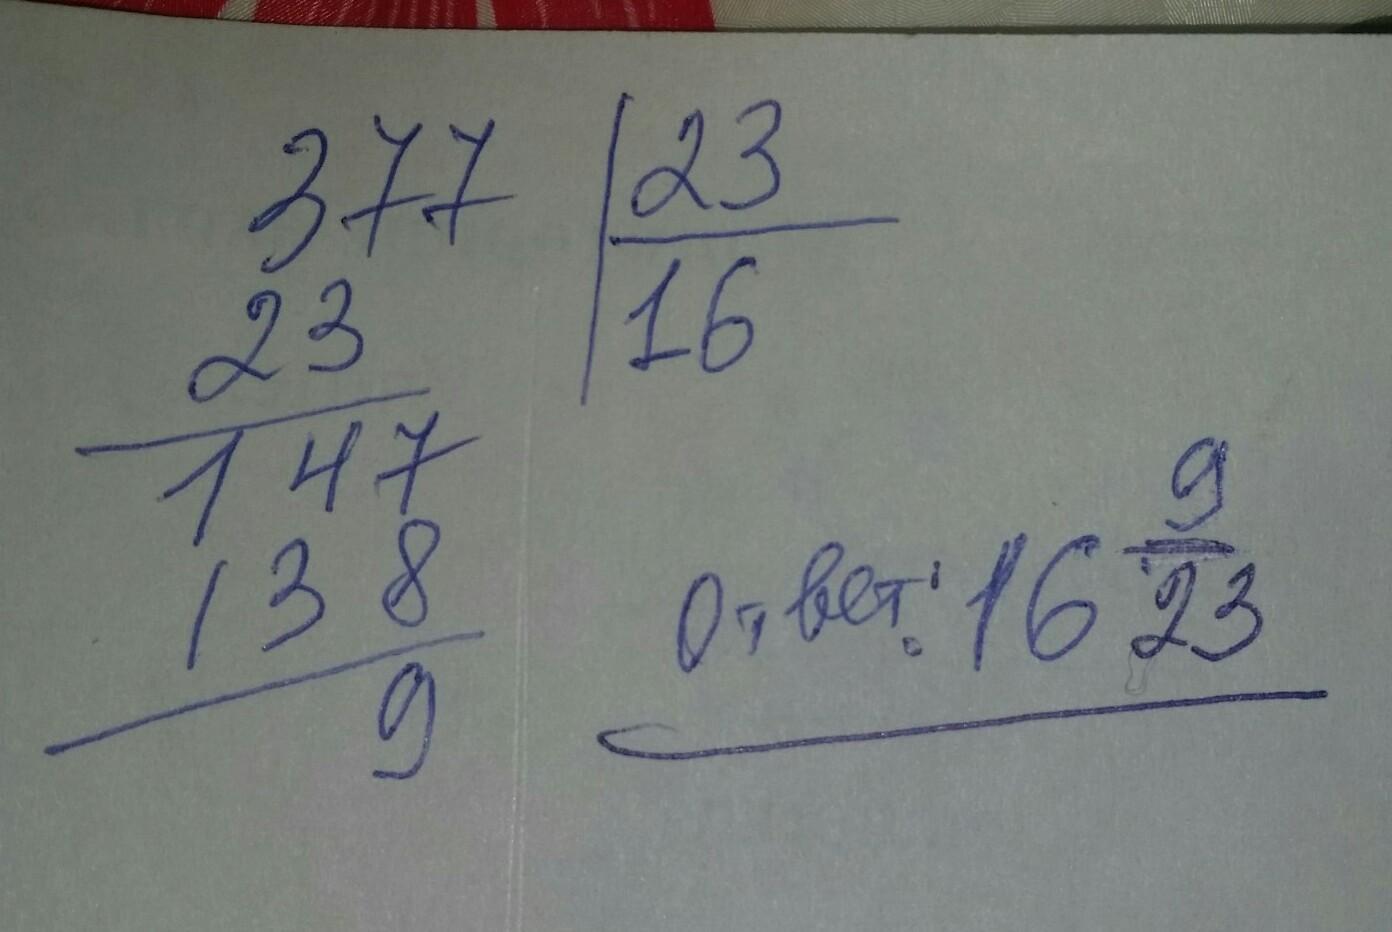 377 23
23 16
147
138
9
Ответ: 16 9/23